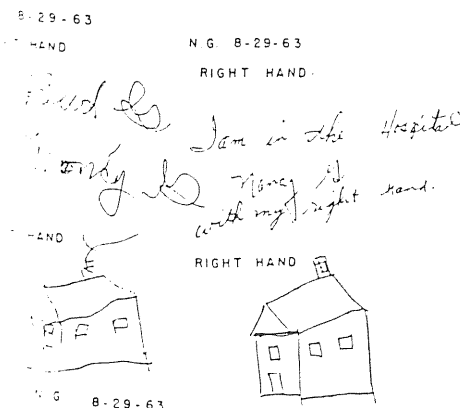 8-29-63
HAND
N.G. 8-29-63
RIGHT HAND.
I am in the Hospital
Nancy G
with my right hand.
HAND
RIGHT HAND
N.G 8-29-63